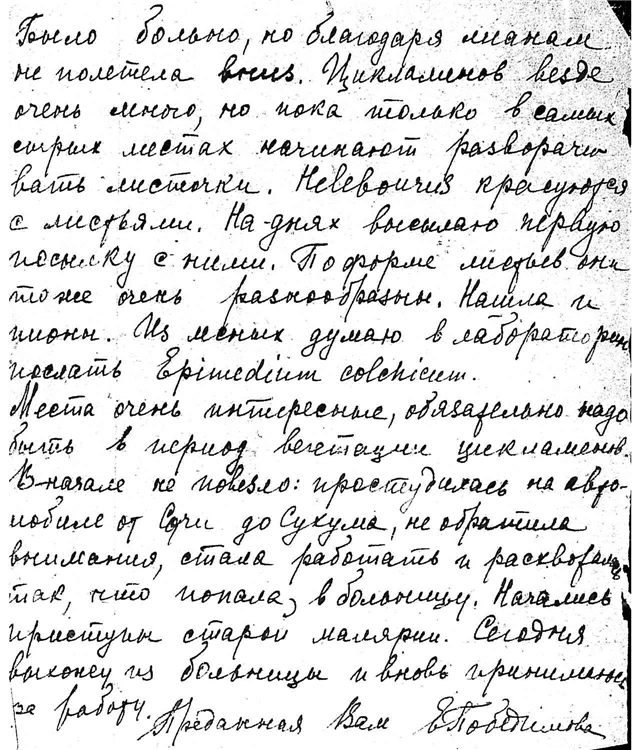 Было больно, но благодаря лианам
не полетела вниз. Цикламенов везде
очень много, но пока только в самых
сырых местах начинают разворачи-
вать листочки. Helleborus красуются
с листьями. На-днях высылаю первую
посылку с ними. По форме листьев они
тоже очень разнообразны. Нашла и
пионы. Из лесных думаю в лаборатории
послать Epimedium colchicum.
Места очень интересные, обязательно надо
быть в период вегетации цикламенов.
В начале не повезло: простудилась на авто-
мобиле от Сочи до Сухума, не обратила
внимания, стала работать и расхворалась
так, что попала в больницу. Начались
приступы старой малярии. Сегодня
выхожу из больницы и вновь принимаюсь
за работу. Преданная Вам ЕПобедимова